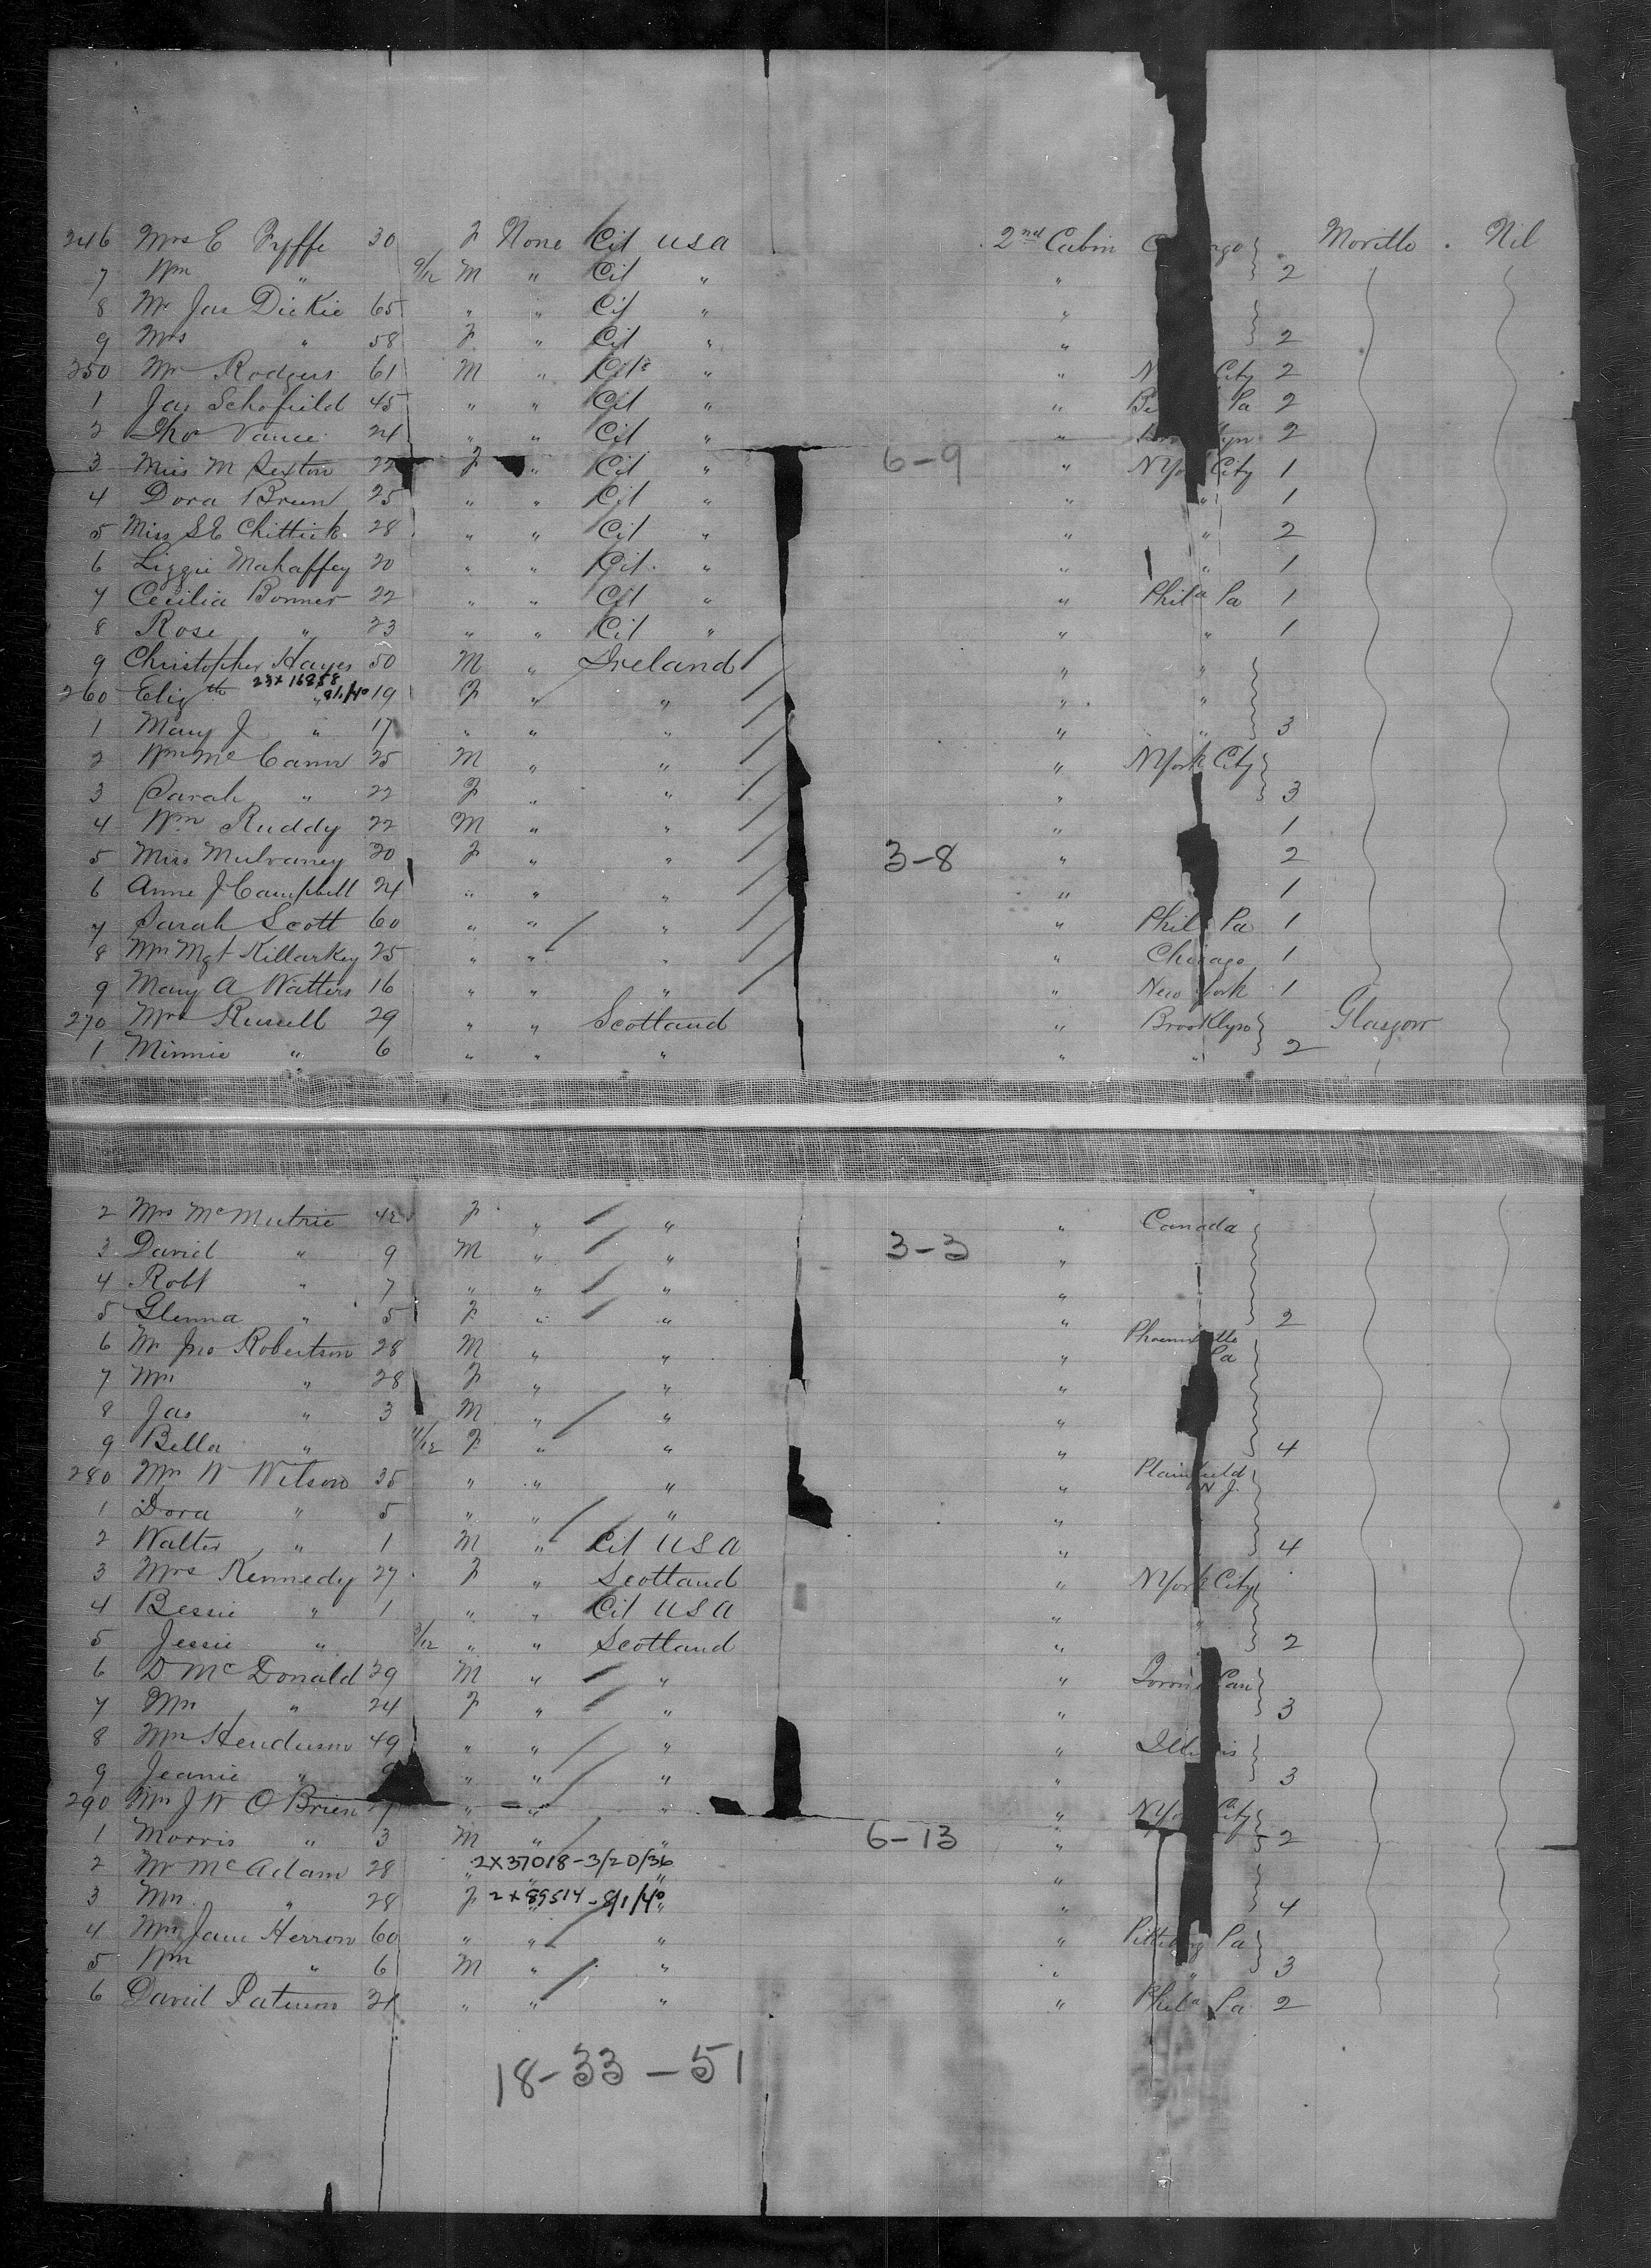 246 Mrs E Fyffe 30 F None Cit USA 2nd Cabin Moville . Nil
7 Wm " 9/12 M " Cit " " 2
8 Mr Jas Dickie 65 " " Cit " "
9 Mrs " 58 F " Cit " " 2
250 Mr Rodgers 61 M " Cit " " N City 2
1 Jas Schofield 45 " " Cit " " Be Pa 2
2 Thos Vance 24 " " Cit " " 2
3 Miss M Sexton 22 F " Cit " 6-9 " N York City 1
4 Dora Breen 25 " " Cit " " " 1
5 Miss S E Chittick 28 " " Cit " " " 2
6 Lizzie Mahaffey 20 " " Cit " " " 1
7 Cecilia Bonner 22 " " Cit " " Phila Pa 1
8 Rose " 23 " " Cit " " " 1
9 Christopher Hayes 50 M " Ireland " "
23X16858
260 Elizth " 8/1/40 19 F " " " "
1 Mary J " 17 " " " " " 3
2 Wm McCann 25 M " " " N York City
3 Sarah " 22 F " " " 3
4 Wm Ruddy 22 M " " " 1
5 Miss Mulvaney 20 F " " 3-8 " 2
6 Anne J Campbell 24 " " " " 1
7 Sarah Scott 60 " " " " Phil Pa 1
8 Mrs Mgt Killarkey 25 " " " " Chicago 1
9 Mary A Watters 16 " " " " New York 1
270 Mrs Russell 29 " " Scotland " Brooklyn Glasgow
1 Minnie " 6 " " " " " 2
2 Mrs McMutrie 42 F " " " Canada
3 David " 9 M " " 3-3 "
4 Robt " 7 " " " "
5 Glenna " 5 F " " " 2
6 Mr Jno Robertson 28 M " " " Pa
7 Mrs " 28 F " " "
8 Jas " 3 M " " "
9 Bella " 11/12 F " " " 4
280 Mrs W Wilson 35 " " " " Plainfield N J.
1 Dora " 5 " " " "
2 Walter " 1 M " Cit USA " 4
3 Mrs Kennedy 27 F " Scotland " N York City
4 Bessie " 1 " " Cit USA " "
5 Jessie " /12 " " Scotland " 2
6 D McDonald 29 M " " " Can
7 Mrs " 24 F " " " 3
8 Mrs Henderson 49 " " " " Illinois
9 Jeanie " 9 " " " " 3
290 Mrs J W O'Brien 27 " " " " N York City
1 Morris " 3 M " " 6-13 " 2
2 Mr McAdam 28 " 2X37018-3/20/36 "
3 Mrs " 28 F 2X89514-8/1/40 " 4
4 Mrs Jane Herron 60 " " " " Pittsburg Pa
5 Wm " 6 M " " " " 3
6 David Paterson 21 " " " " Phila Pa 2
18-33-51